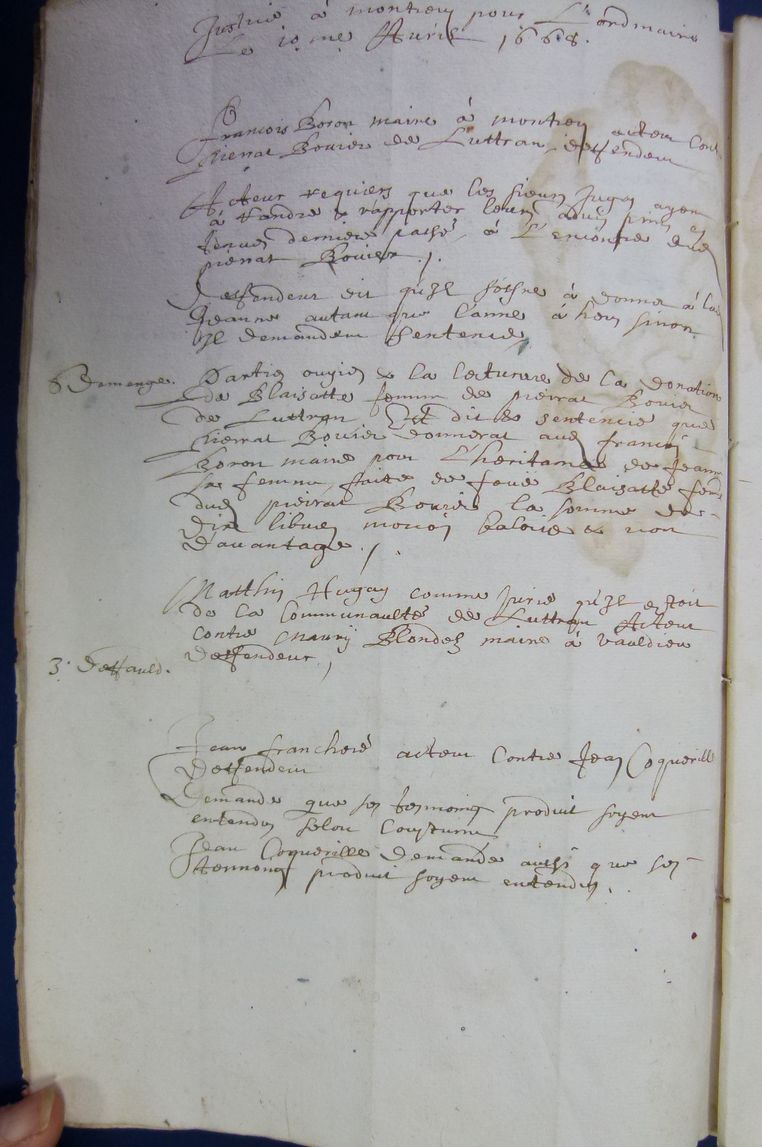 Justice à montreu pour L'ordinaire
Le 10me Auril 1668.
François Boron maire à montreu acteur Cont
Pierrat Bourier de Luttran, deffendeur
Acteur requiers que les sieurs Juges ayent
à Randre & rapporter leurs aduis prins es
Journes derniere passé, à L'encontre dud
pierrat Bourier ./.
Deffendeur dit qu'Jl s'offre à donner à la
Jeanne autant que sinon
Jl demandent sentence
6 Demenge. Parties ouyes & la lecturre de la donation
de Blaisatte femme de pierrat Bourier
de Luttran Est dit & sentencie que
Pierrat Bourier donnerat aud françois
Boron maire pour L'heritance de Jeanne
sa femme, faite de feue Blaisatte femme
dud pierrat Bourie la somme de
Dix liures monoy baloise & non
Dauantage ./.
Matthis Hugay comme Jurie qu'Jl estoit
de la Communaulté de Luttran Acteur
Contre Maury Blondez maire à Vauldieu
Deffendeur /
3. Deffauld.
Jean francheré acteur Contre Jean Coquerille
Deffendeur
Demande que ses tesmoins produit soyent
entendus selon Coustume
Jean Coquerille Demande aussi que ses
tesmoins produit soyent entendus.